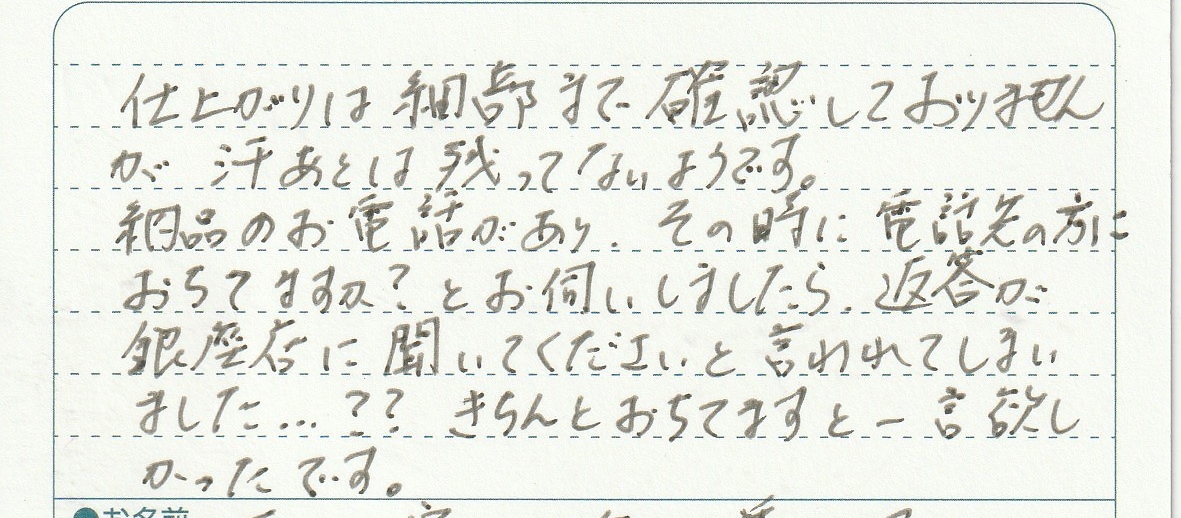 仕上がりは細部まで確認しておりません
が 汗あとは残ってないようです。
納品のお電話があり、その時に電話先の方に
おちてますか?とお伺いしましたら、返答が
銀座店に聞いてくださいと言われてしまい
ました…?? きちんとおちてますと一言欲し
かったです。
●お名前